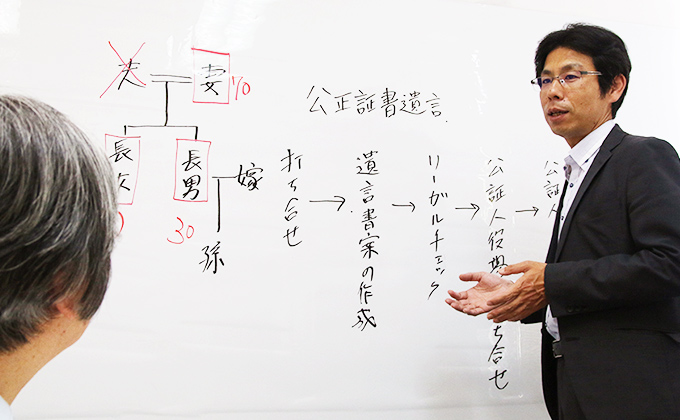 夫 妻 70
長
長男 嫁
30
孫
公正証書遺言
打ち合せ
→
遺言書案の作成
→
リーガルチェック
→
公証人役場
ち合せ
→
公証人